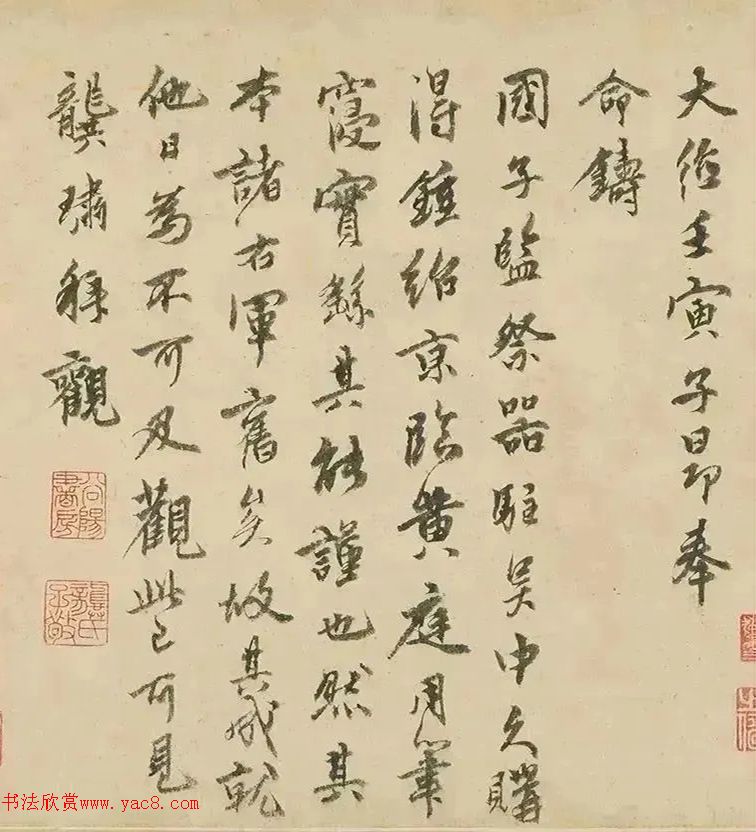 大德壬寅子昂奉
命鑄
國子監祭器駐吳中久購
得鍾紹京臨黃庭用筆
寖實繇其能謹也然其
本諸右軍舊矣故其成就
他日為不可及觀此已可見
龔璛拜觀
谷陽書房
龔氏子敬
书法欣赏www.yac8.com